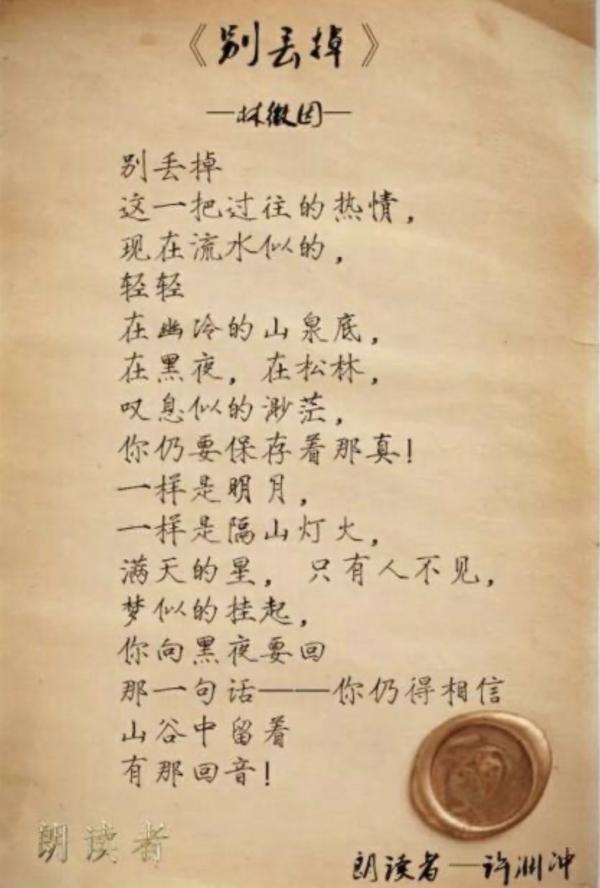 《别丢掉》
—林徽因—
别丢掉
这一把过往的热情，
现在流水似的，
轻轻
在幽冷的山泉底，
在黑夜，在松林，
叹息似的渺茫，
你仍要保存着那真！
一样是明月，
一样是隔山灯火，
满天的星，只有人不见，
梦似的挂起，
你向黑夜要回
那一句话——你仍得相信
山谷中留着
有那回音！
朗读者
朗读者—许渊冲